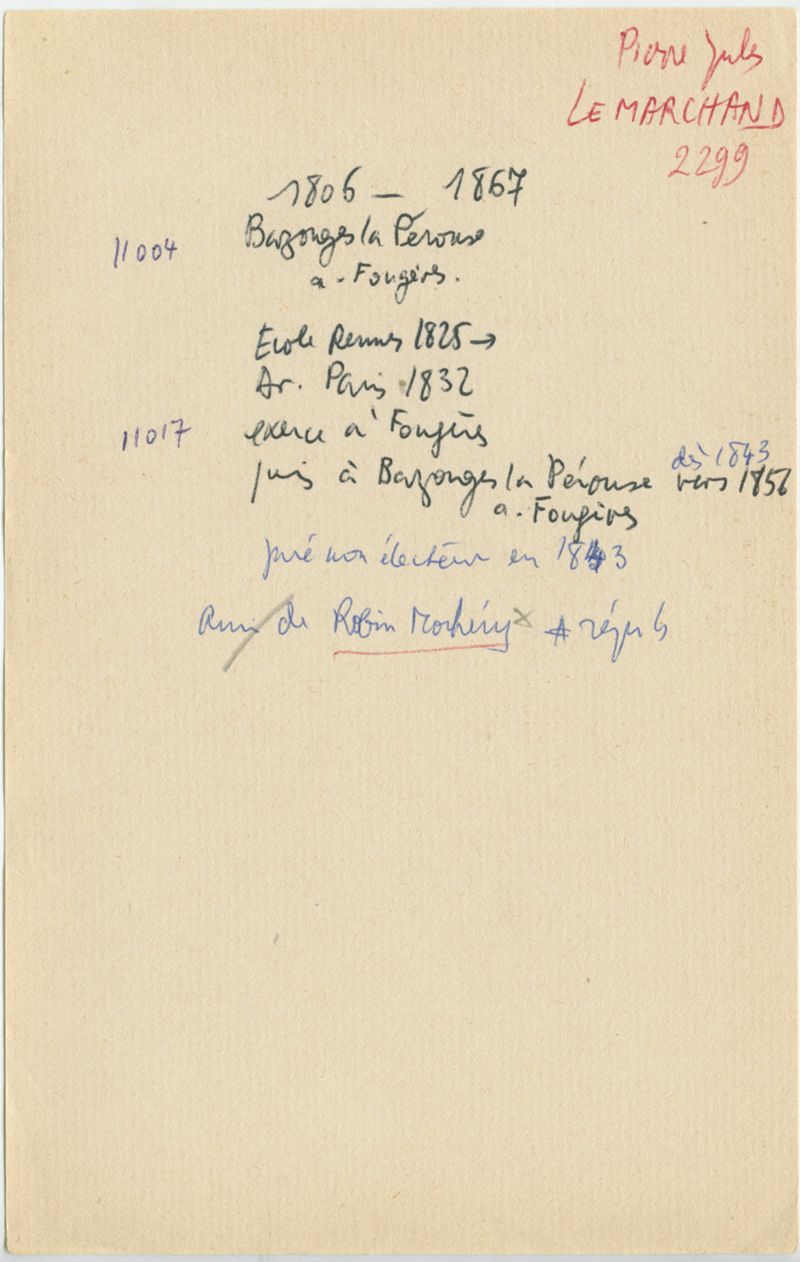 Pierre Jules
LE MARCHAND
2299
1806 — 1867
11004 Bazouges la Pérouse
a. Fougères.
Ecole Rennes 1825 →
Dr. Paris 1832
11017 exerce à Fougères
dès 1843
puis à Bazouges la Pérouse vers 1856
a. Fougères
juré non électeur en 1843
Ami de Robin Morhéry x